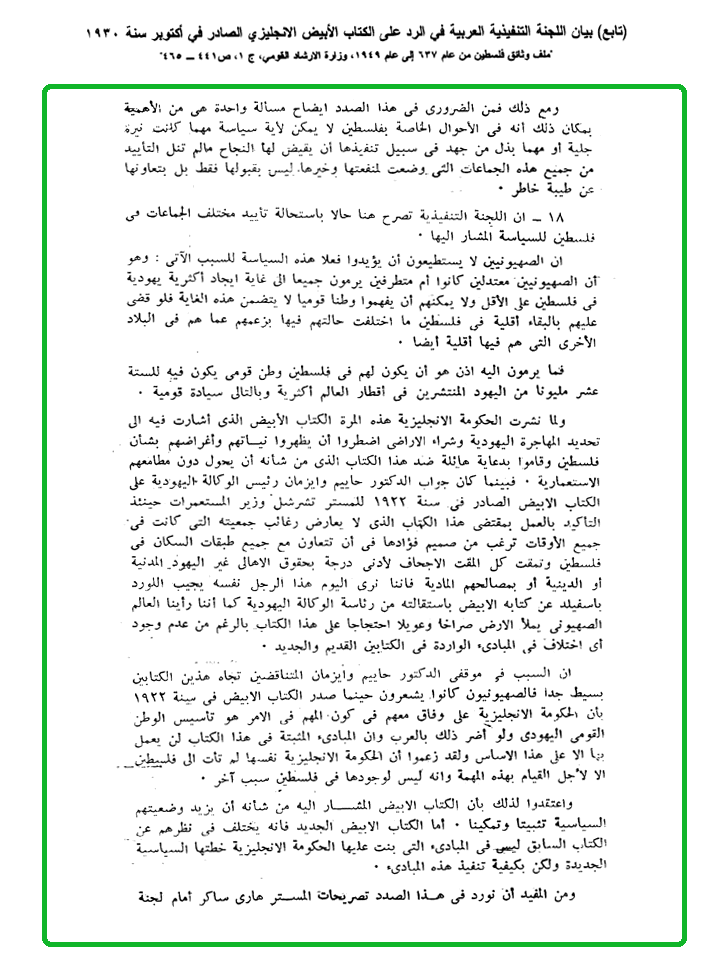 (تابع) بيان اللجنة التنفيذية العربية في الرد على الكتاب الأبيض الانجليزي الصادر في أكتوبر سنة ١٩٣٠
"ملف وثائق فلسطين من عام ٦٣٧ إلى عام ١٩٤٩، وزارة الارشاد القومي، ج ١، ص ٤٤١ – ٤٦٥"
ومع ذلك فمن الضرورى فى هذا الصدد ايضاح مسألة واحدة هى من الأهمية
بمكان ذلك أنه فى الأحوال الخاصة بفلسطين لا يمكن لأية سياسة مهما كانت نيرة
جلية أو مهما بذل من جهد فى سبيل تنفيذها أن يقيض لها النجاح مالم تنل التأييد
من جميع هذه الجماعات التى وضعت لمنفعتها وخيرها ليس بقبولها فقط بل بتعاونها
عن طيبة خاطر ٠
١٨ – ان اللجنة التنفيذية تصرح هنا حالا باستحالة تأييد مختلف الجماعات فى
فلسطين للسياسة المشار اليها ٠
ان الصهيونيين لا يستطيعون أن يؤيدوا فعلا هذه السياسة للسبب الآتى : وهو
أن الصهيونيين معتدلين كانوا أم متطرفين يرمون جميعا الى غاية ايجاد أكثرية يهودية
فى فلسطين على الأقل ولا يمكنهم أن يفهموا وطنا قوميا لا يتضمن هذه الغاية فلو قضى
عليهم بالبقاء أقلية فى فلسطين ما اختلفت حالتهم فيها بزعمهم عما هم فى البلاد
الأخرى التى هم فيها أقلية أيضا ٠
فما يرمون اليه اذن هو أن يكون لهم فى فلسطين وطن قومى يكون فيه للستة
عشر مليونا من اليهود المنتشرين فى أقطار العالم أكثرية وبالتالى سيادة قومية ٠
ولما نشرت الحكومة الانجليزية هذه المرة الكتاب الأبيض الذى أشارت فيه الى
تحديد المهاجرة اليهودية وشراء الاراضى اضطروا أن يظهروا نياتهم وأغراضهم بشأن
فلسطين وقاموا بدعاية هائلة ضد هذا الكتاب الذى من شأنه أن يحول دون مطامعهم
الاستعمارية ٠ فبينما كان جواب الدكتور حاييم وايزمان رئيس الوكالة اليهودية على
الكتاب الابيض الصادر فى سنة ١٩٢٢ للمستر تشرشل وزير المستعمرات حينئذ
التأكيد بالعمل بمقتضى هذا الكتاب الذى لا يعارض رغائب جمعيته التى كانت فى
جميع الأوقات ترغب من صميم فؤادها فى أن تتعاون مع جميع طبقات السكان فى
فلسطين وتمقت كل المقت الاجحاف لأدنى درجة بحقوق الاهالى غير اليهود المدنية
أو الدينية أو بمصالحهم المادية فاننا نرى اليوم هذا الرجل نفسه يجيب اللورد
باسفيلد عن كتابه الابيض باستقالته من رئاسة الوكالة اليهودية كما أننا رأينا العالم
الصهيونى يملأ الارض صراخا وعويلا احتجاجا على هذا الكتاب بالرغم من عدم وجود
أى اختلاف فى المبادىء الواردة فى الكتابين القديم والجديد ٠
ان السبب فى موقفى الدكتور حاييم وايزمان المتناقضين تجاه هذين الكتابين
بسيط جدا فالصهيونيون كانوا يشعرون حينما صدر الكتاب الابيض فى سنة ١٩٢٢
بأن الحكومة الانجليزية على وفاق معهم فى كون المهم فى الامر هو تأسيس الوطن
القومى اليهودى ولو أضر ذلك بالعرب وان المبادىء المثبتة فى هذا الكتاب لن يعمل
بها الا على هذا الاساس ولقد زعموا أن الحكومة الانجليزية نفسها لم تأت الى فلسطين
الا لأجل القيام بهذه المهمة وانه ليس لوجودها فى فلسطين سبب آخر ٠
واعتقدوا لذلك بأن الكتاب الابيض المشار اليه من شأنه أن يزيد وضعيتهم
السياسية تثبيتا وتمكينا ٠ أما الكتاب الابيض الجديد فانه يختلف فى نظرهم عن
الكتاب السابق ليس فى المبادىء التى بنت عليها الحكومة الانجليزية خطتها السياسية
الجديدة ولكن بكيفية تنفيذ هذه المبادىء ٠
ومن المفيد أن نورد فى هذا الصدد تصريحات المستر هارى ساكر أمام لجنة